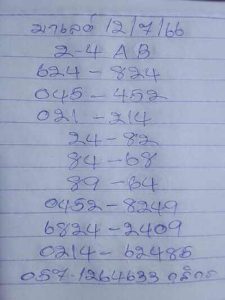 มาเลย์ 12/7/66
2-4 A B
624-824
045-452
021-214
24-82
84-68
89-64
0452-8249
6824-2409
0214-62485
057-1264633